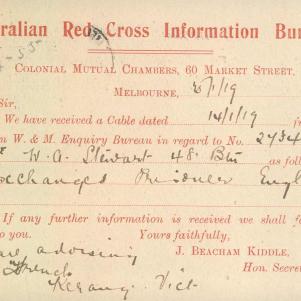 ralian Red Cross Information Bur
COLONIAL MUTUAL CHAMBERS, 60 MARKET STREET,
MELBOURNE, /1/19
Sir,
We have received a Cable dated 14/1/19 fr
m W. & M. Enquiry Bureau in regard to No. 2734
W. A. Stewart 48 Btn as follo
exchanged Prisoner Engl
If any further information is received we shall f
to you. Yours faithfully,
advising J. BEACHAM KIDDLE,
French Hon. Secre
Kerang. Vict